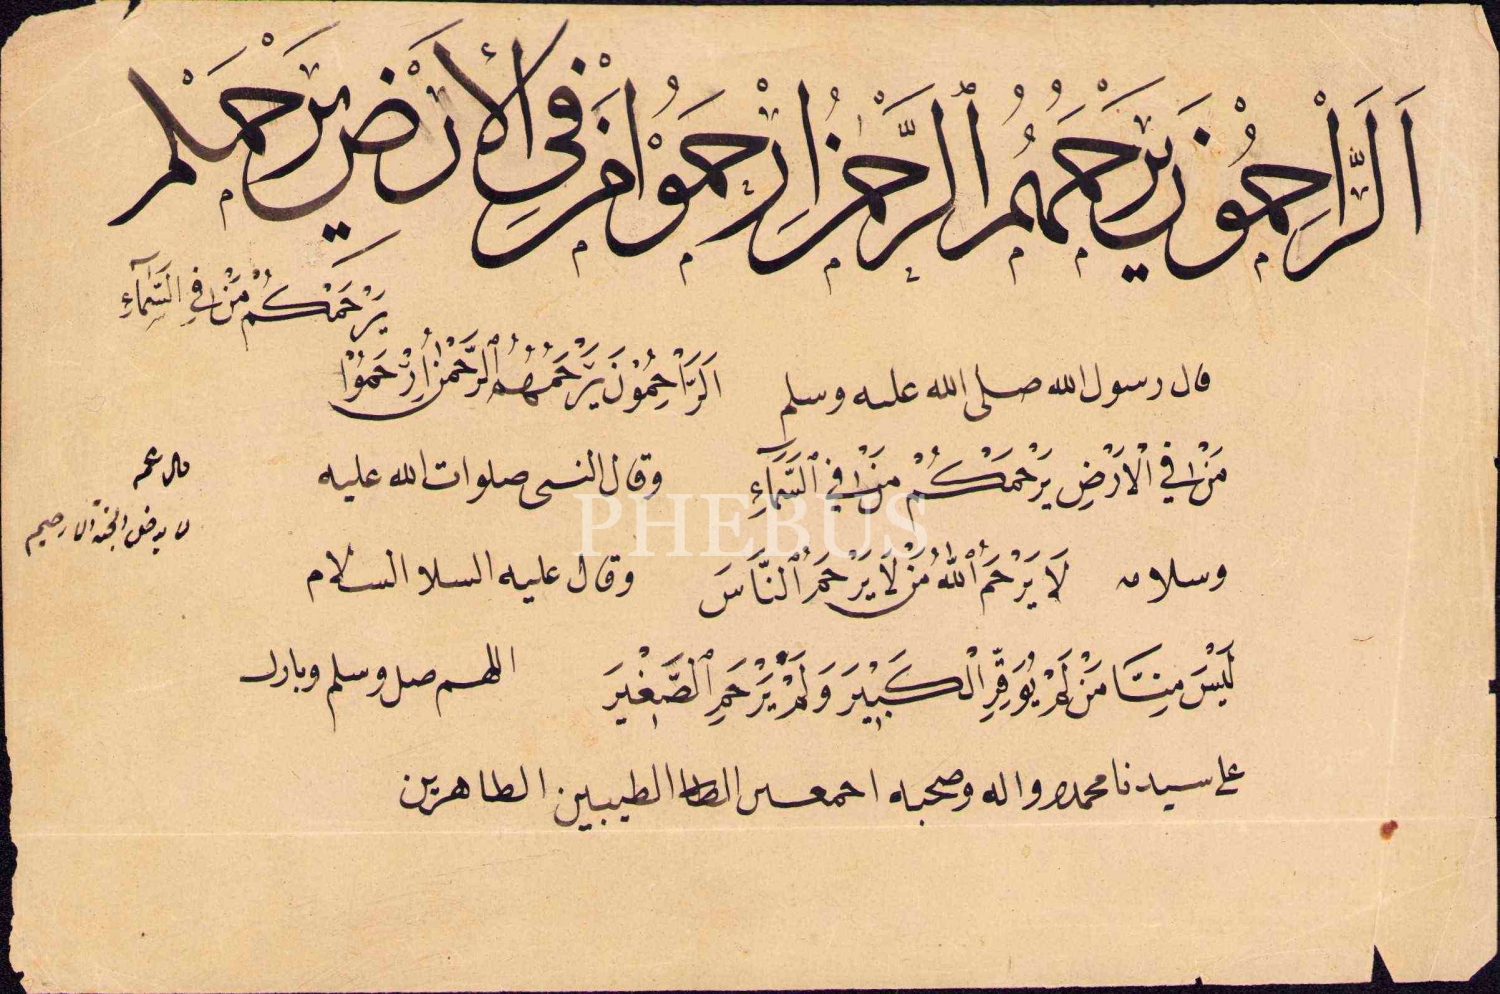 اَلرَّاحِمُوْنَ يَرْحَمُهُمُ ٱلرَّحْمٰنُ اِرْحَمُوْا مَنْ فِي الْأَرْضِ يَرْحَمْكُمْ
يَرْحَمْكُمْ مَنْ فِي السَّمَآءِ
قال رسول الله صلى الله عليه وسلم اَلرَّاحِمُوْنَ يَرْحَمُهُمُ ٱلرَّحْمٰنُ اِرْحَمُوْا
مَنْ فِي الْاَرْضِ يَرْحَمْكُمْ مَنْ فِي ٱلسَّمَآءِ وقال النبى صلوات الله عليه
وسلامه لَا يَرْحَمُ ٱللّٰهُ مَنْ لَا يَرْحَمُ ٱلنَّاسَ وقال عليه السلا السلام
لَيْسَ مِنَّا مَنْ لَمْ يُوَقِّرِ الْكَبِيْرَ وَلَمْ يَرْحَمِ ٱلصَّغِيْرَ اللهم صل وسلم وبارك
على سيدنا محمد واله وصحبه اجمعين الطا الطيبين الطاهرين
قال عم
لا يدخل الجنة الا رحيم
PHEBUS